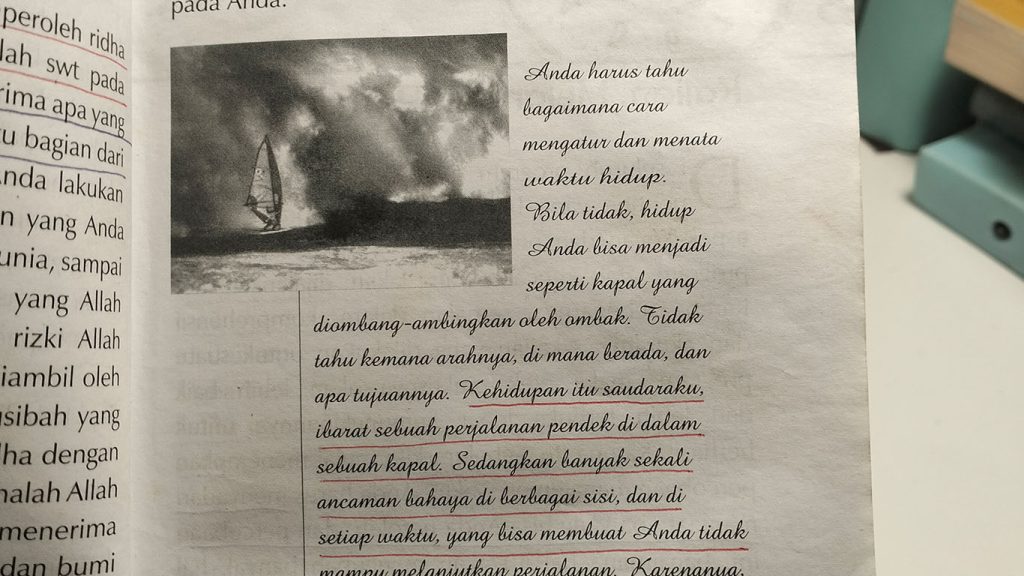 peroleh ridha
lah swt pada
rima apa yang
u bagian dari
Anda lakukan
n yang Anda
unia, sampai
yang Allah
rizki Allah
iambil oleh
sibah yang
ha dengan
alah Allah
menerima
dan bumi
pada Anda.
Anda harus tahu
bagaimana cara
mengatur dan menata
waktu hidup.
Bila tidak, hidup
Anda bisa menjadi
seperti kapal yang
diombang-ambingkan oleh ombak. Tidak
tahu kemana arahnya, di mana berada, dan
apa tujuannya. Kehidupan itu saudaraku,
ibarat sebuah perjalanan pendek di dalam
sebuah kapal. Sedangkan banyak sekali
ancaman bahaya di berbagai sisi, dan di
setiap waktu, yang bisa membuat Anda tidak
mampu melanjutkan perjalanan. Karenanya,